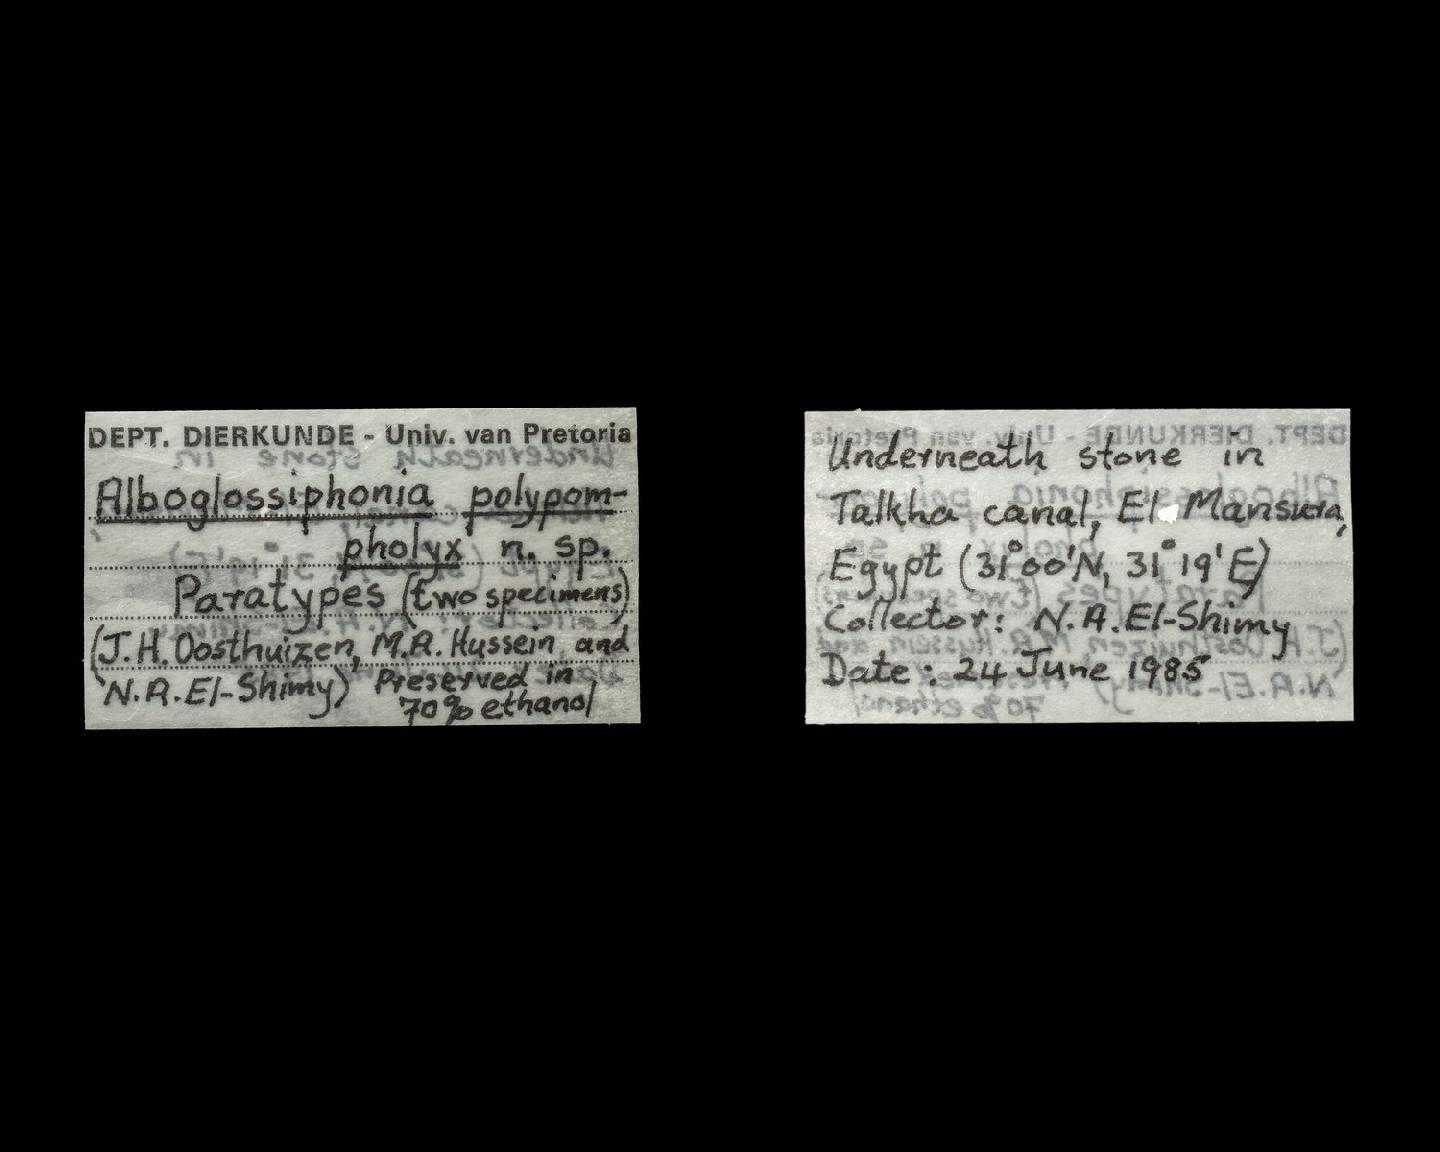 DEPT. DIERKUNDE - Univ. van Pretoria
Alboglossiphonia polypom-
pholyx n. sp.
Paratypes (two specimens)
(J.H. Oosthuizen, M.A. Hussein and
N.A. El-Shimy) Preserved in
70% ethanol
Underneath stone in
Talkha canal, El Mansura,
Egypt (31°00'N, 31°19'E)
Collector: N.A. El-Shimy
Date: 24 June 1985